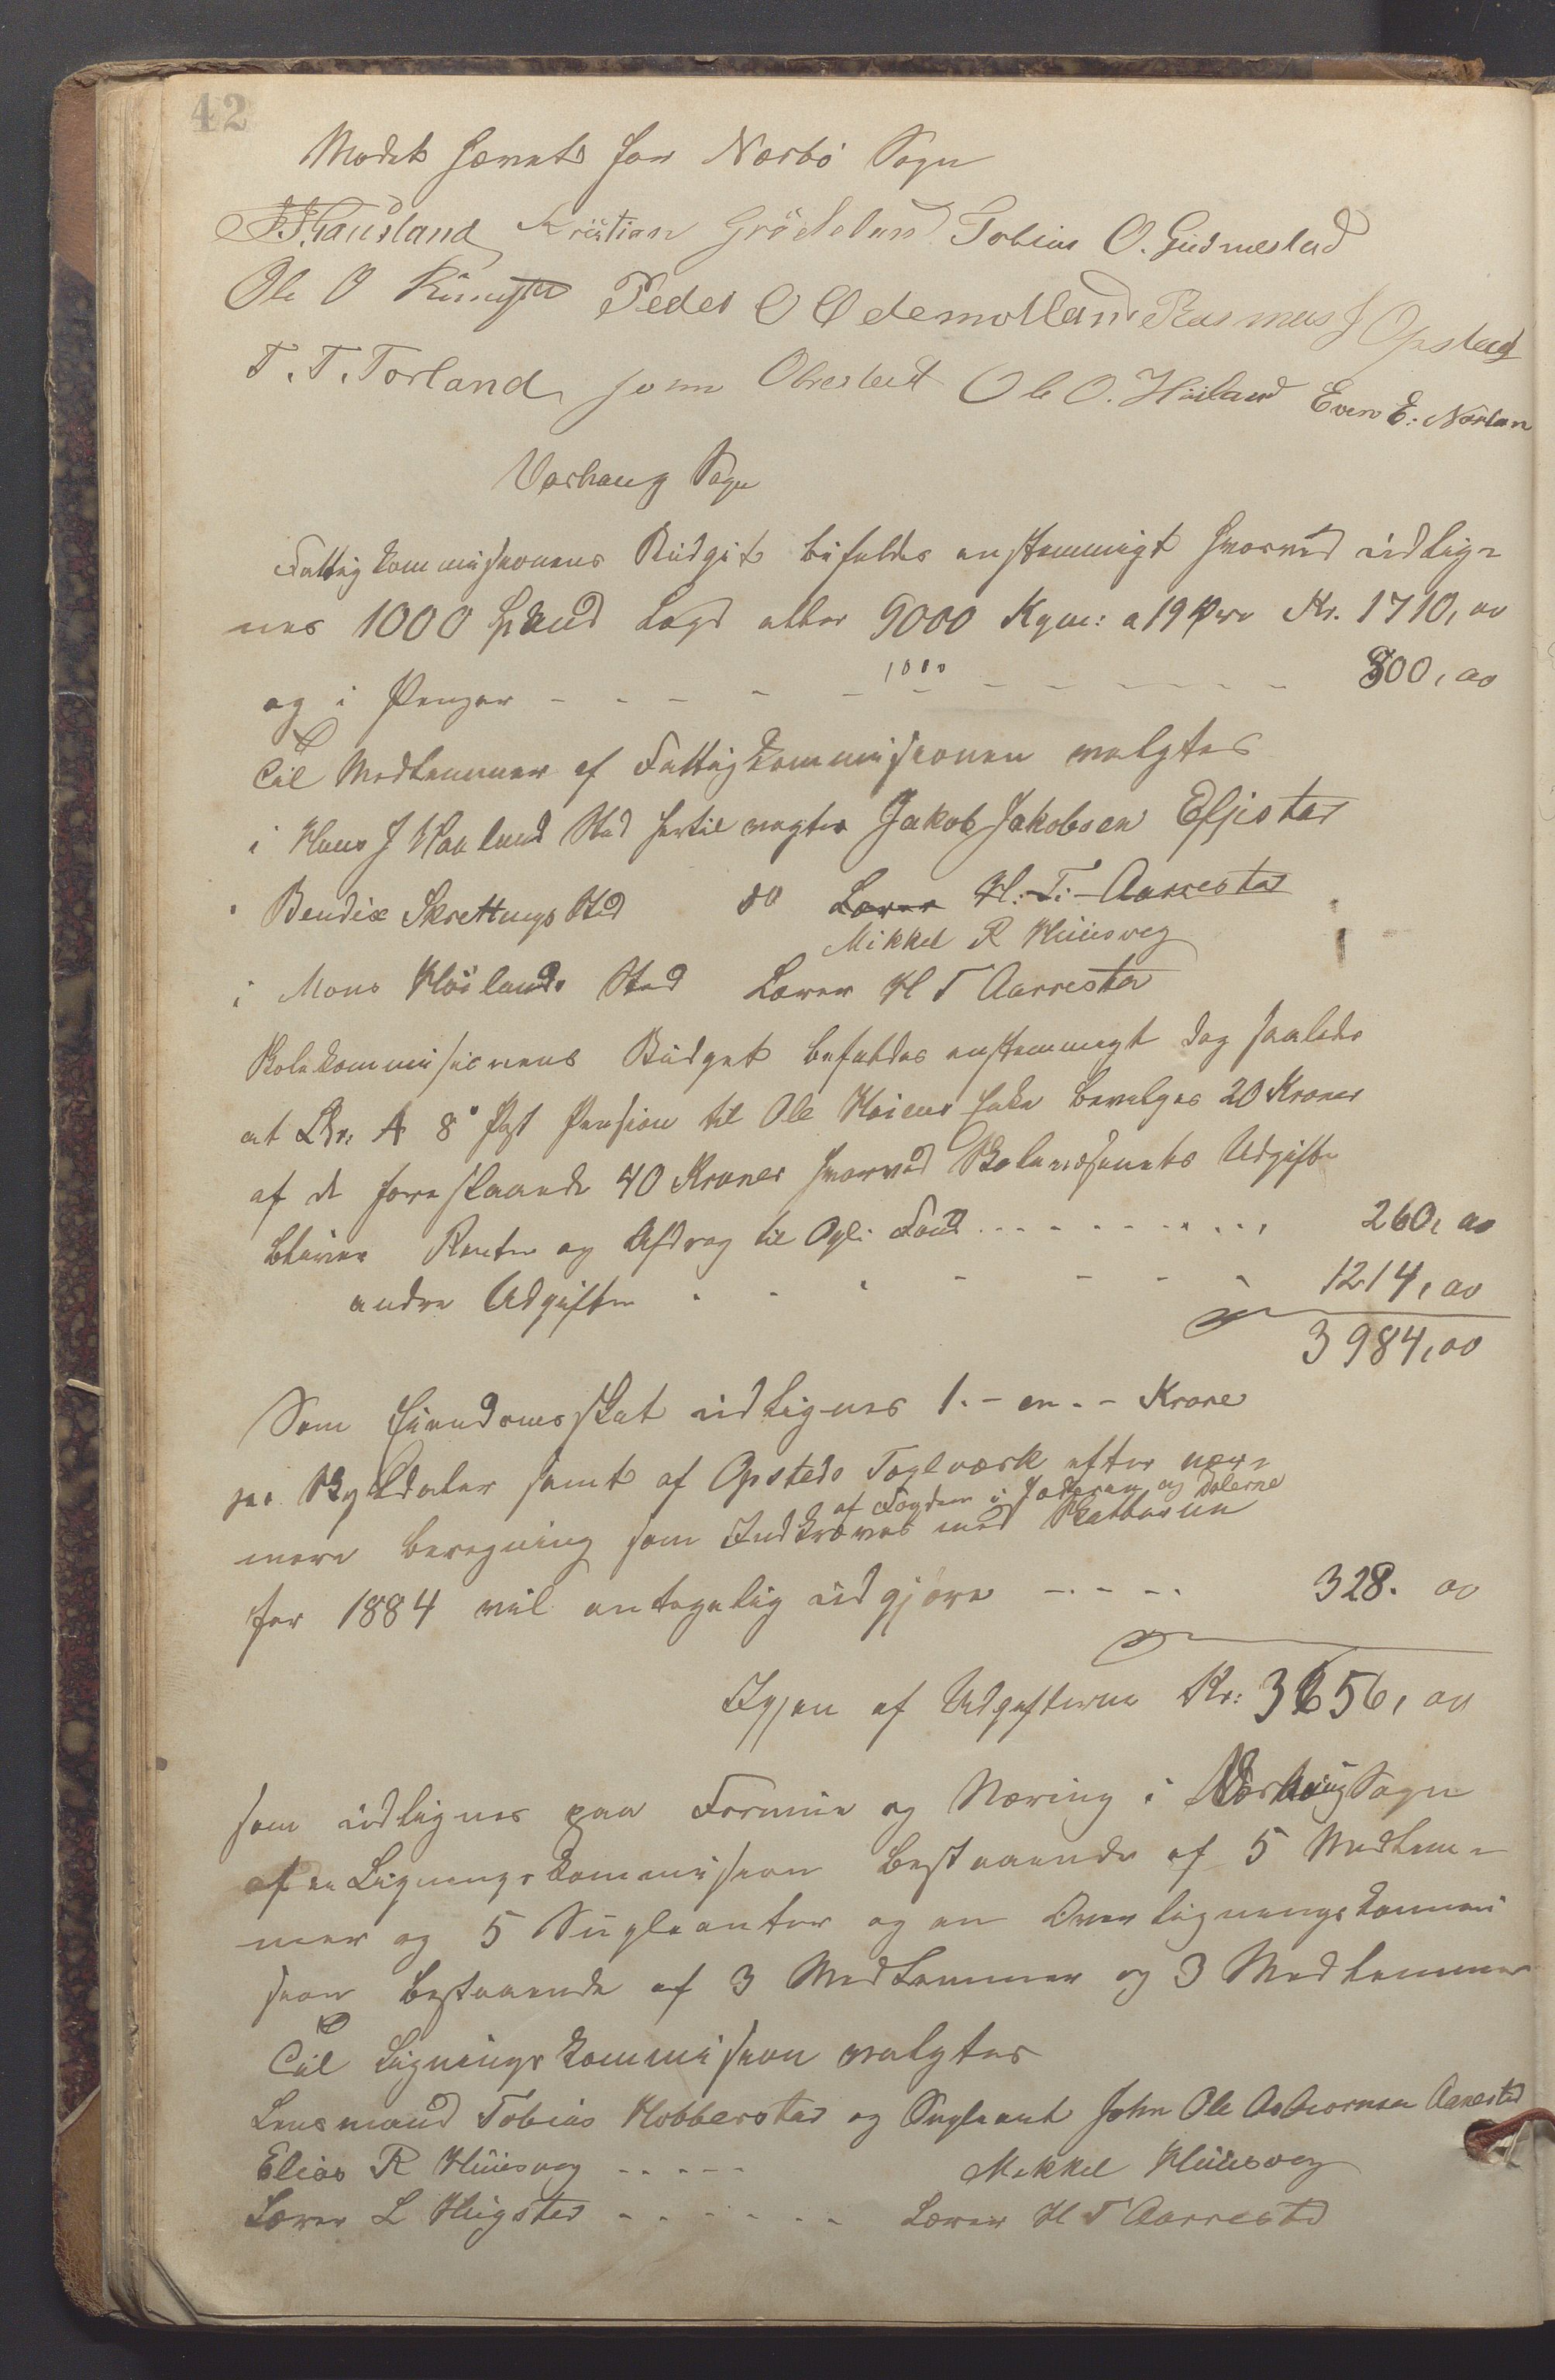 42
Mödet hævet for Nærbö Sogn
Kristian Grödeland Tobias O. Gudmestad
Ole O Peder O Ødemotland Rasmus J Opstad
T. T. Torland John Obrestad Ole O. Höiland Even E. Nærlan
Varhaug Sogn
Fattigkommisionens Büdget bifaldes enstemmigt hvorved üdlig-
nes 1000 Spand Lagd eller 9000 Kgm: a 19 Øre Kr. 1710, oo
og i Penger - - - - - 1000 - - - - - - 800, oo
Til Medlemmer af Fattigkommisionen valgtes
i Hans J Haaland Sted hertil valgtes Jakob Jakobsen Efjestad
i Bendix Skrettings Sted do Lærer H. T. Aarrestad
Mikkel R Hüüsveg
i Mons Höilands Sted Lærer H T Aarrestad
Skolekommisionens Büdget bifaldes enstemmigt dog saaledes
at Litr. A 8° Post Pension til Ole Enke bevilges 20 Kroner
af de foreslaaede 40 Kroner hvorved Skolevæsenets Udgifter
bliver Renter og Afdrag til Opl: Fond - - - - - - - - 260, oo
andre Udgifter - - - - - - - 1214, oo
3984, oo
Som Eiendomsskat üdlignes 1. - en. - Krone
pr. Skylddaler samt af Opsteds Teglværk efter nær-
af Fogden i Jæderen og Dalerne
mere beregning som Indkræves med Skatterne
for 1884 vil antagelig üdgjöre - - - - 328. oo
Igjen af Udgifterne Kr: 3656, oo
som üdlignes paa Formüe og Næring i Varhaüg Sogn
af en Ligningskommision bestaaende af 5 Medlem-
mer og 5 Süpleanter og en Overligningskommi
sion bestaaende af 3 Medlemmer og 3 Medlemmer
Til Ligningskommision valgtes
Lensmand Tobias Hobberstad og Supleant John Ole Asbiornsen Aanestad
Elias R Hüüsveg - - - - - Mikkel Hüüsveg
Lærer L Høigstad - - - - - - Lærer H T Aarrestad